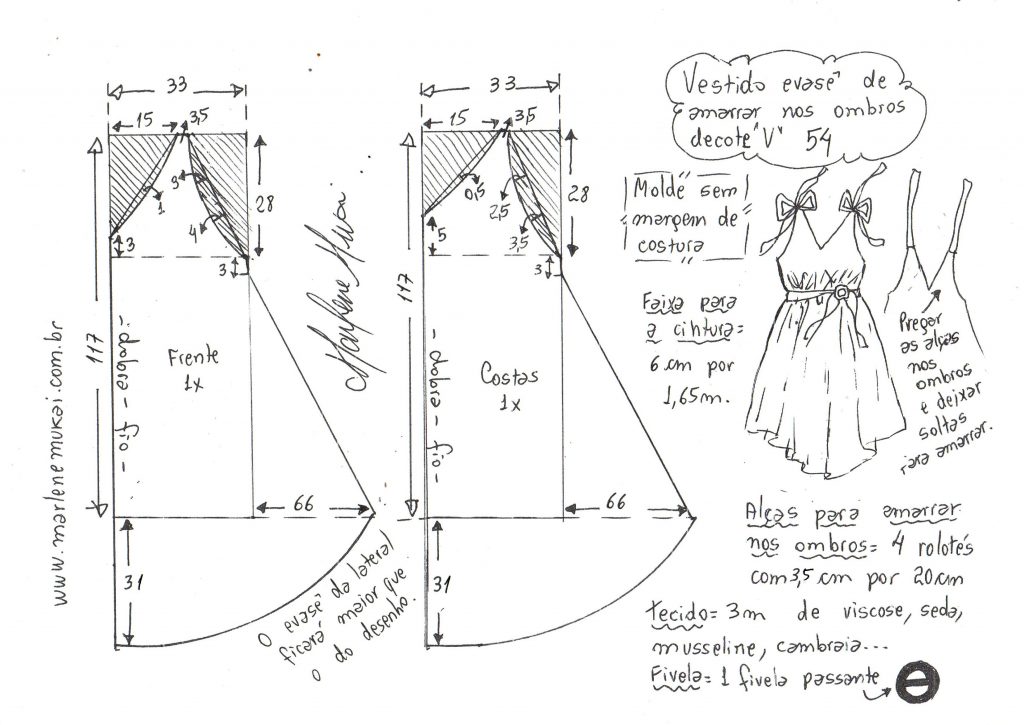 Vestido evasê de
amarrar nos ombros
decote "V" 54
Molde sem
margem de
costura
Faixa para
a cintura=
6 cm por
1,65m.
Pregar
as alças
nos
ombros
e deixar
soltas
para amarrar.
Alças para amarrar
nos ombros= 4 rolotés
com 3,5 cm por 20cm
Tecido= 3m de viscose, seda,
musseline, cambraia...
Fivela= 1 fivela passante
33
15
3,5
1
9
4
3
28
3
117
- dobra - fio -
Frente
1x
66
31
O evasê da lateral
ficará maior que
o do desenho.
Marlene Mukai
www.marlenemukai.com.br
33
15
3,5
0,5
2,5
3,5
5
28
3
117
- dobra - fio -
Costas
1x
66
31